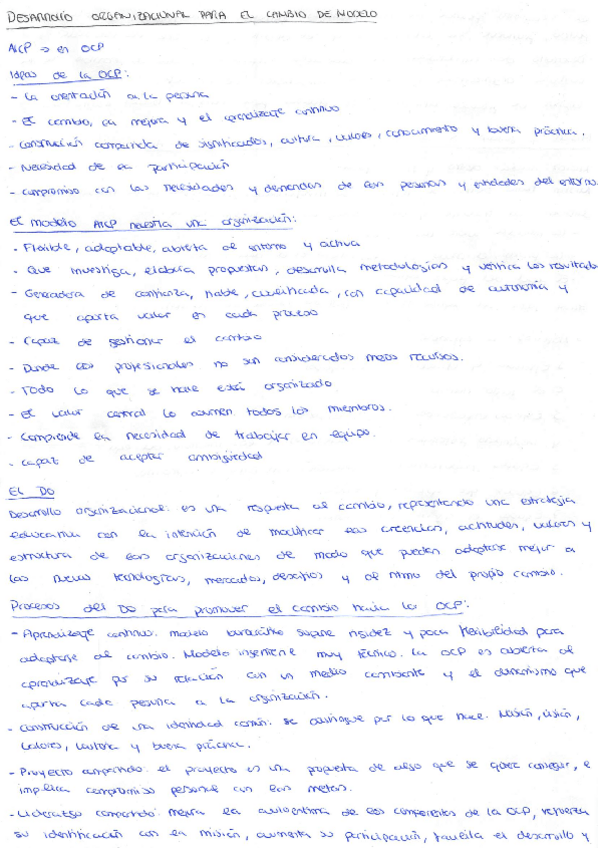 DESARROLLO ORGANIZACIONAL PARA EL CAMBIO DE MODELO
AICP → en OCP
Ideas de la OCP:
- La orientación a la persona
- El cambio, la mejora y el aprendizaje continuo
- Construcción compartida de significados, cultura, valores, conocimiento y buena práctica.
- Necesidad de la participación
- Compromiso con las necesidades y demandas de las personas y entidades del entorno.
El modelo AICP necesita una organización:
- Flexible, adaptable, abierta al entorno y activa
- Que investiga, elabora propuestas, desarrolla metodologías y verifica los resultados
- Generadora de confianza, fiable, cualificada, con capacidad de autonomía y
que aporta valor en cada proceso
- Capaz de gestionar el cambio
- Donde los profesionales no son considerados meros recursos.
- Todo lo que se hace está organizado
- El valor central lo asumen todos los miembros.
- Comprende la necesidad de trabajar en equipo.
- Capaz de aceptar ambigüedad
EL DO
Desarrollo organizacional: es una respuesta al cambio, representando una estrategia
educativa con la intención de modificar las creencias, actitudes, valores y
estructura de las organizaciones de modo que puedan adaptarse mejor a
las nuevas tecnologías, mercados, desafíos y al ritmo del propio cambio.
Procesos del DO para promover el cambio hacia la OCP:
- Aprendizaje continuo: modelo burocrático supone rigidez y poca flexibilidad para
adaptarse al cambio. Modelo ingenieril muy técnico. La OCP es abierta al
aprendizaje por su relación con un medio cambiante y el dinamismo que
aporta cada persona a la organización.
- Construcción de una identidad común: se distingue por lo que hace. Misión, visión,
valores, cultura y buena práctica.
- Proyecto compartido: el proyecto es una propuesta de algo que se quiere conseguir, e
implica compromiso personal con las metas.
- Liderazgo compartido: mejora la autoestima de los componentes de la OCP, refuerza
su identificación con la misión, aumenta su participación, facilita el desarrollo y